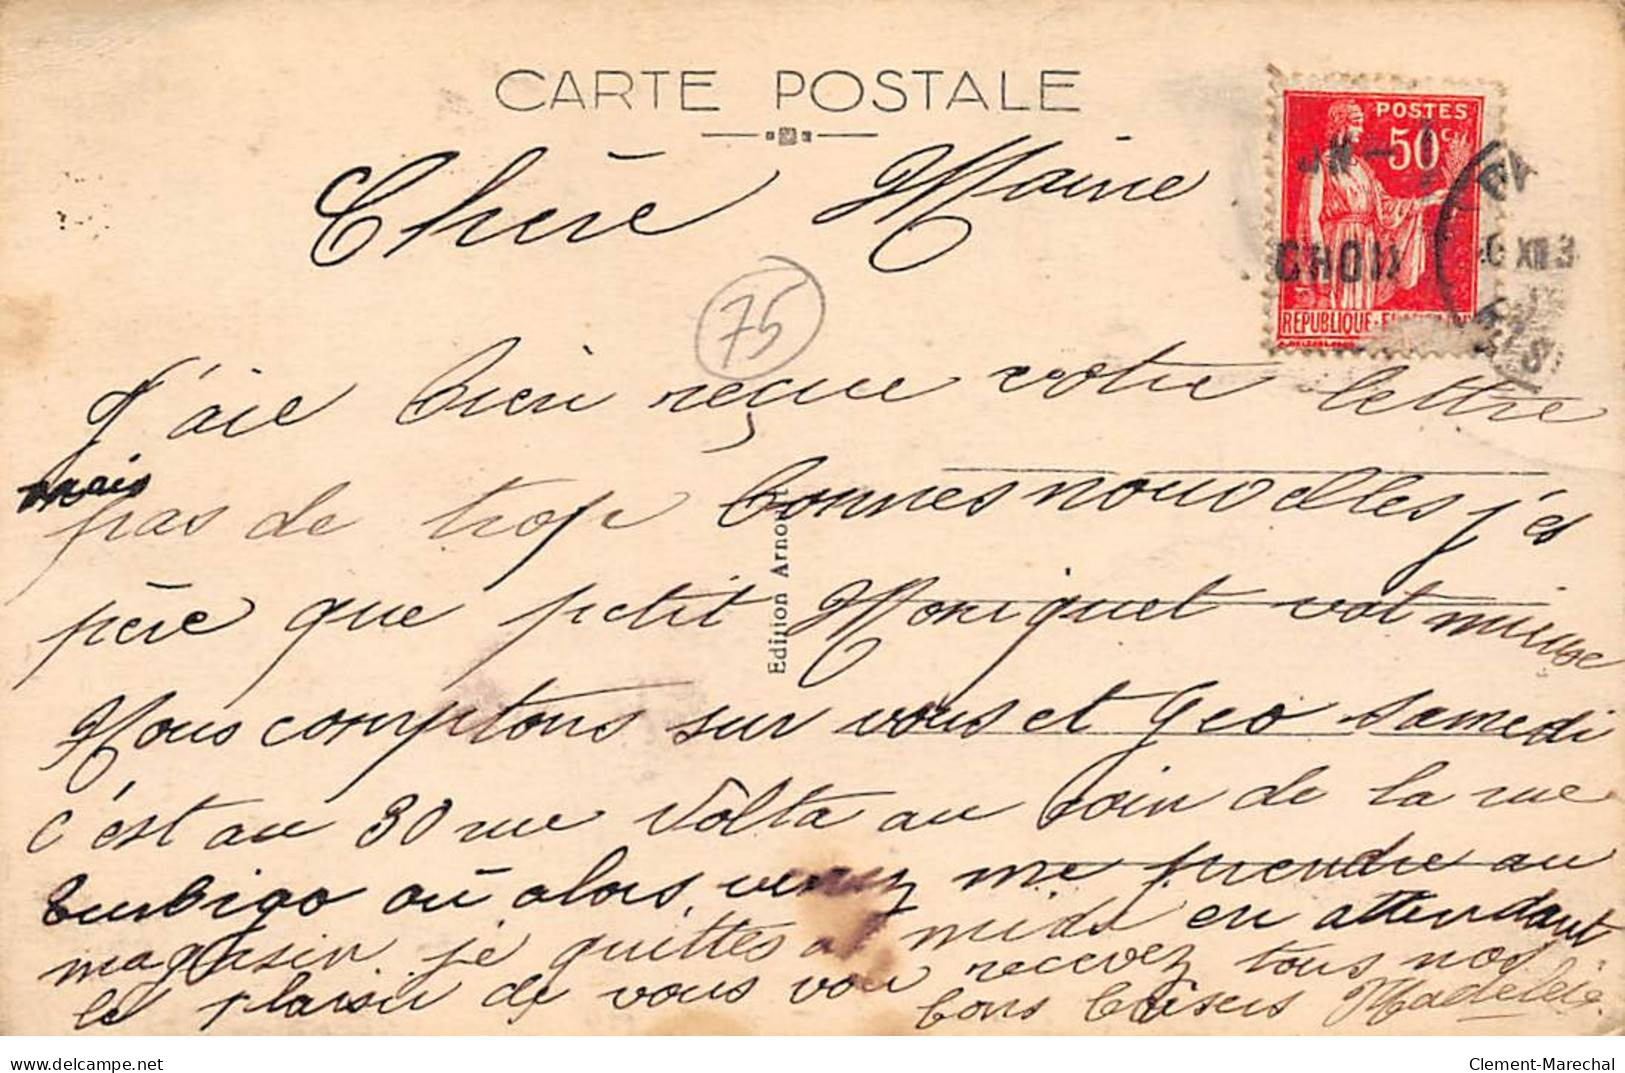 CARTE POSTALE
Chère Maine
POSTES
50c
CROIX
XII 3
REPUBLIQUE
75
J'aie bien reçue votre lettre
mais
pas de trop bonnes nouvelles j'es
père que petit Moriquet vat mieuse
Nous comptons sur vous et Geo samedi
c'est au 30 rue Volta au coin de la rue
turbigo où alors venez me prendre au
magasin je quittes a midi en attendant
le plaisir de vous voir recevez tous nos
bons baisers Madeleine
Edition Arnould
Clement-Marechal
delcampe.net